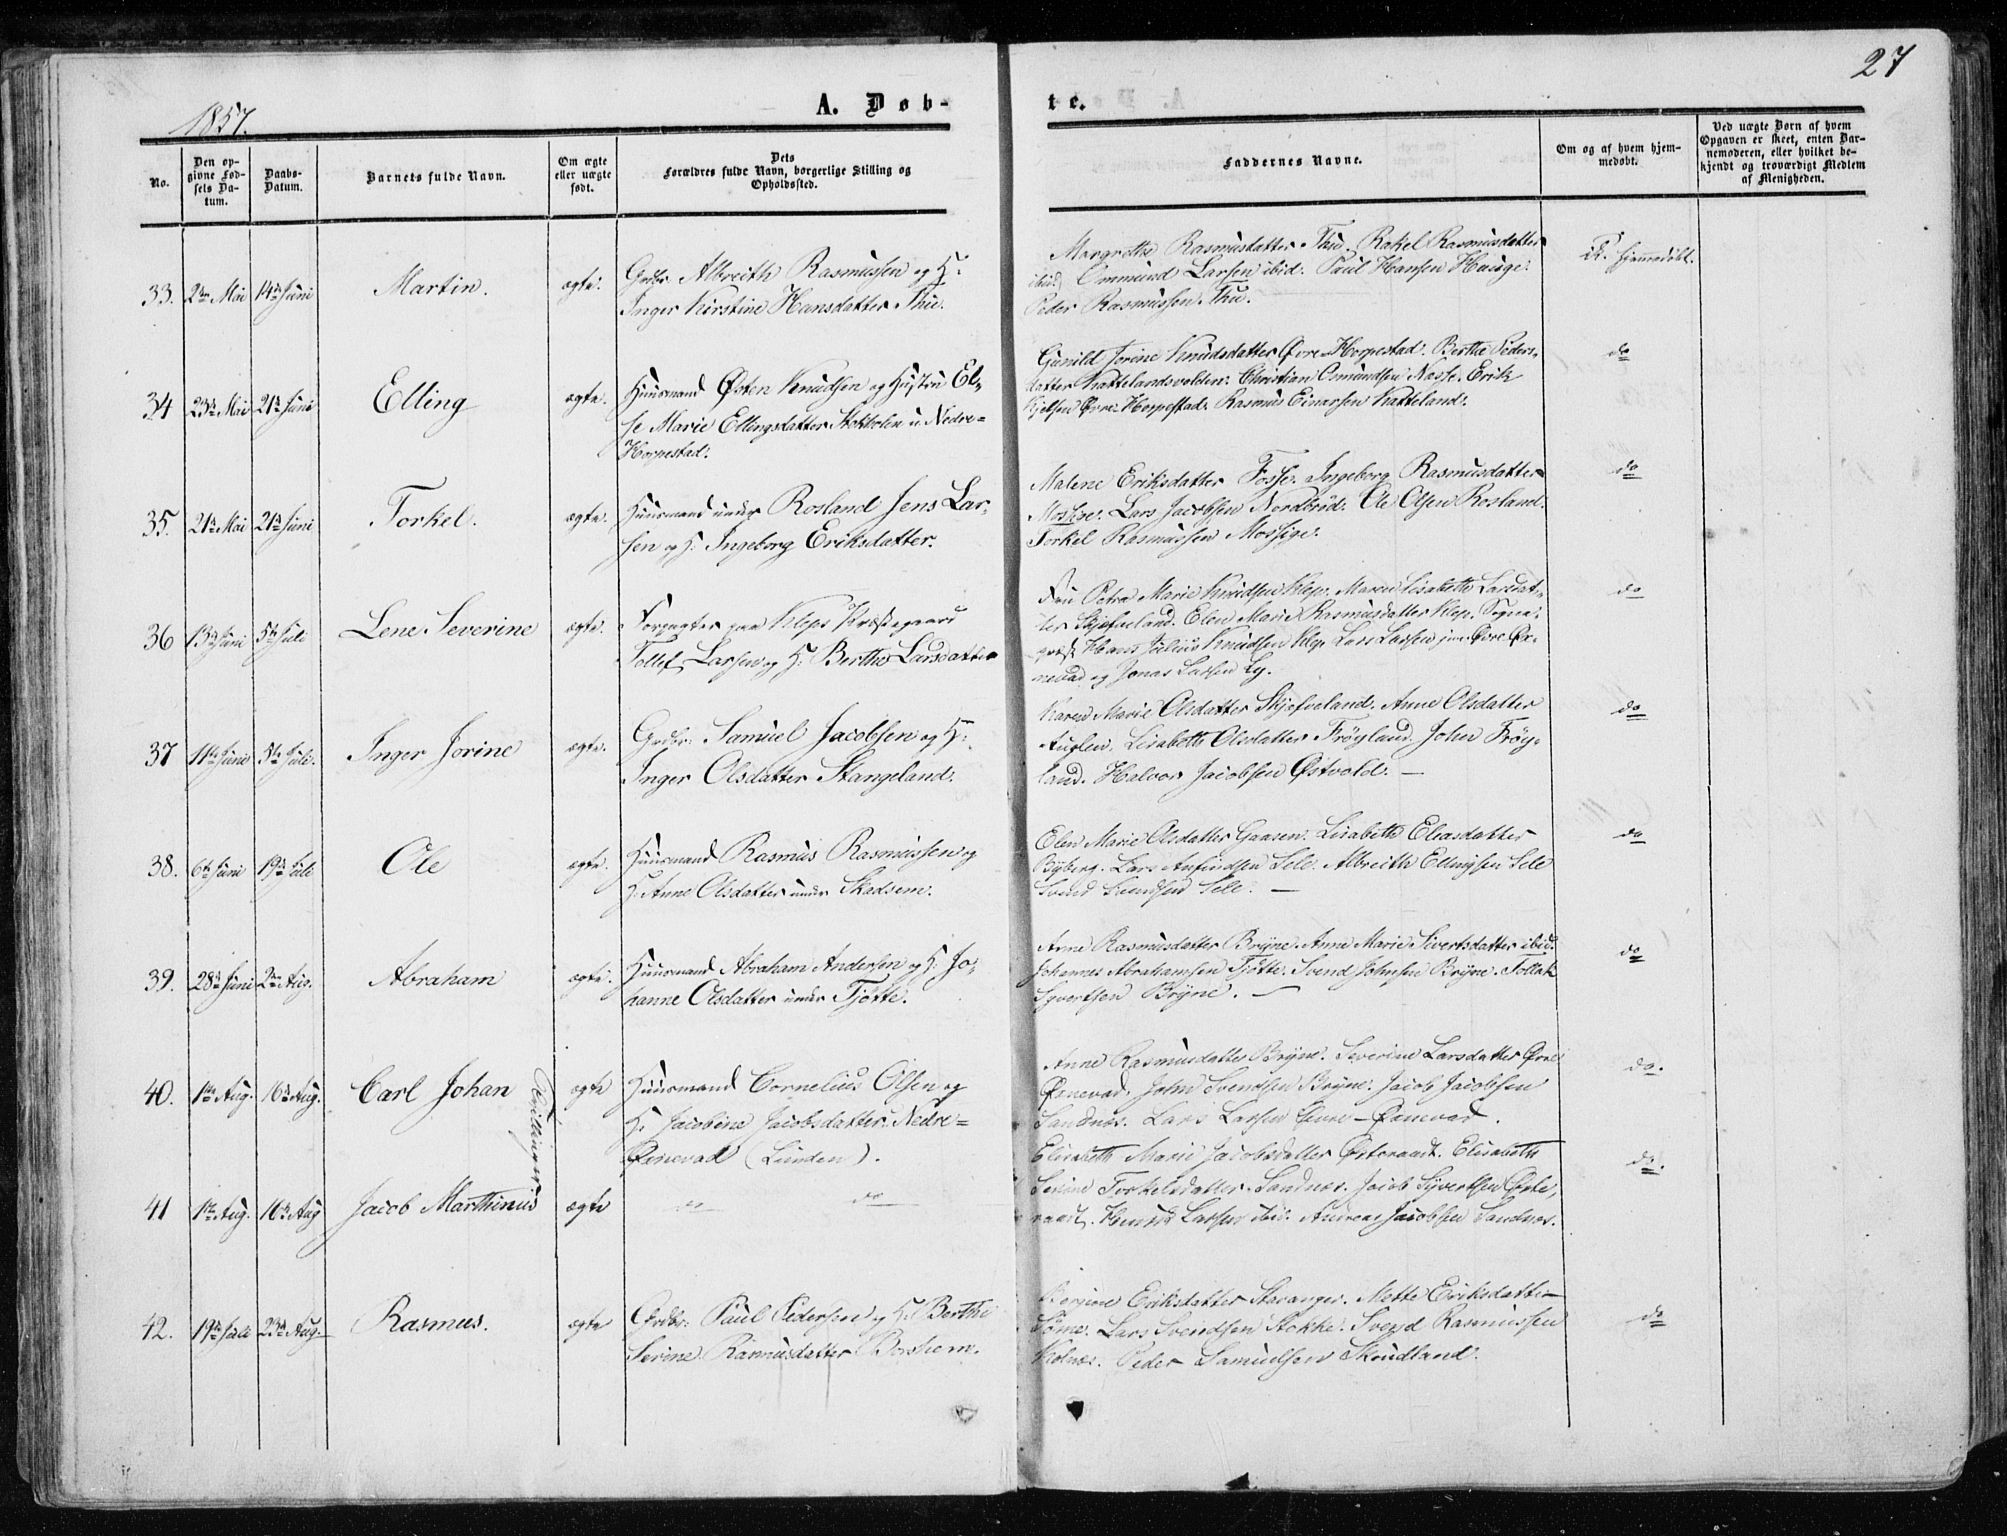 27
1857.
A. Døb-
te.
No.
Den op-
givne Fød-
sels Da-
tum.
Daabs-
Datum.
Barnets fulde Navn.
Om ægte
eller uægte
født.
Dets
Forældres fulde Navn, borgerlige Stilling og
Opholdssted.
Faddernes Navne.
Om og af hvem hjem-
medøbt.
Ved uægte Børn af hvem
Opgaven er skeet, enten Bar-
nemoderen, eller hvilket be-
kjendt og troværdigt Medlem
af Menigheden.
33. 2den Mai 14de Juni Martin. ægte. Grdbr. Albreith Rasmussen og H:
Inger Kirstine Hansdatter Thu.
Margrethe Rasmusdatter Thu. Rakel Rasmusdatter
ibid: Ommund Larsen ibid: Paul Hansen Hauge.
Peder Rasmussen Thu.
Ei hjemmedøbt.
34 23de Mai 21de Juni Elling ægte. Huusmand Østen Knudsen og Hustru El-
se Marie Ellingsdatter Stokholen u. Nedre-
Horpestad.
Gunild Jorine Knudsdatter Øvre Horpestad. Berthe Peders-
datter Kattelandsvolden. Christian Osmundsen Næsse. Erik
Kjelsen Øvre-Horpestad. Rasmus Einarsen Katteland.
do
35. 21de Mai 21de Juni Torkel. ægte. Huusmand under Rosland Jens Lar-
sen og H: Ingeborg Eriksdatter.
Malene Eriksdatter Fosse. Ingeborg Rasmusdatter
Mossige. Lars Jacobsen Nordbrød. Ole Olsen Rosland.
Torkel Rasmussen Mossige.
do
36 13de Juni 5te Juli Lene Severine ægte. Forpagter paa Kleps Præstegaard
Tollef Larsen og H: Berthe Larsdatter
Fru Petra Marie Knudsen Klep. Maren Lisabeth Larsdat-
ter Skjefveland. Elen Marie Rasmusdatter Klep. Sogne-
præst Hans Julius Knudsen Klep. Lars Larsen jun. Øvre Øx-
nevad og Jonas Larsen Ly.
do
37 11te Juni 5te Juli. Inger Jorine ægte. Grdbr: Samuel Jacobsen og H:
Inger Olsdatter Stangeland.
Karen Marie Olsdatter Skjefveland. Anne Olsdatter
Auglen. Lisabeth Olsdatter Frøyland. John Frøy-
land. Halvor Jacobsen Østvold. —
do
38. 6te Juni 19de Juli Ole ægte. Huusmand Rasmus Rasmussen og
H: Anne Olsdatter under Skadsem.
Elen Marie Olsdatter Gaasen. Lisabeth Eleasdatter
Byberg. Lars Anfindsen Sele. Albreith Ellingsen Sele
Svend Svendsen Sele. —
do
39. 28de Juni 2den Aug. Abraham ægte. Huusmand Abraham Andersen og H: Jo-
hanne Olsdatter under Tjøtte.
Anne Rasmusdatter Bryne. Anne Marie Sivertsdatter ibid:
Johannes Abrahamsen Tjøtte. Svend Johnsen Bryne. Tollak
Syvertsen Bryne. —
do
40. 1ste Aug. 16de Aug. Carl Johan ægte Huusmand Cornelius Olsen og
H: Jacobine Jacobsdatter. Nedre-
Øxnevad (Lunden).
Tvillinger
Anne Rasmusdatter Bryne. Severine Larsdatter Øvre
Øxnevad. John Svendsen Bryne. Jacob Jacobsen
Sandnæs. Lars Larsen Øvre-Øxnevad.
do.
41 1ste Aug. 16de Aug Jacob Marthinus ægte do do
Elisabeth Marie Jacobsdatter Østeraadt. Elisabeth
Serine Torkelsdatter Sandnæs. Jacob Syvertsen Øste-
raadt. Larsen ibid. Andreas Jacobsen Sandnæs.
do.
42. 19de Juli 23de Aug. Rasmus. ægte Grdbr: Paul Pedersen og H: Berthe
Serine Rasmusdatter Borshem.
Eriksdatter Stavanger. Mette Eriksdatter
Søme. Lars Svendsen Stokke. Svend Rasmussen
Kolnæs. Peder Samuelsen Skudland.
do